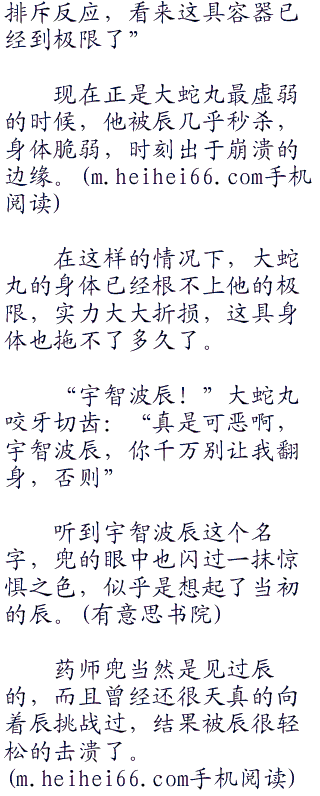 排斥反应，看来这具容器已
经到极限了”
现在正是大蛇丸最虚弱
的时候，他被辰几乎秒杀，
身体脆弱，时刻出于崩溃的
边缘。(m.heihei66.com手机
阅读)
在这样的情况下，大蛇
丸的身体已经根不上他的极
限，实力大大折损，这具身
体也拖不了多久了。
“宇智波辰！”大蛇丸
咬牙切齿：“真是可恶啊，
宇智波辰，你千万别让我翻
身，否则”
听到宇智波辰这个名
字，兜的眼中也闪过一抹惊
惧之色，似乎是想起了当初
的辰。(有意思书院)
药师兜当然是见过辰
的，而且曾经还很天真的向
着辰挑战过，结果被辰很轻
松的击溃了。
(m.heihei66.com手机阅读)